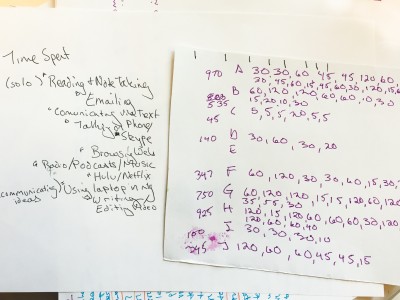 Time Spent
(solo) * Reading & Note Taking
Emailing
* Comunicating via Text
Talking * Phone
* Skype
* Browsing Web
* Radio/Podcasts/Music
* Hulu/Netflix
(communicating ideas) * Using laptop in
* Writing/
Editing Video
970 A 30, 30, 60, 45, 45, 120, 60,
30, 45, 60, 15, 45, 60, 30, 120, 15,
B 60, 120, 120, 60, 60, 60, 10, 30
535 15, 20, 10, 30
45 C 5, 5, 5, 20, 5, 5
140 D 30, 60, 30, 20
E
347 F 60, 120, 30, 30, 60, 15, 30,
750 G 60, 120, 120, 15, 15, 120, 60, 120
35, 55, 30
925 H 120, 15, 120, 60, 60, 60, 30, 120
120, 60, 60, 40
100 I 30, 30, 30, 10
245 J 120, 60, 60, 45, 45, 15